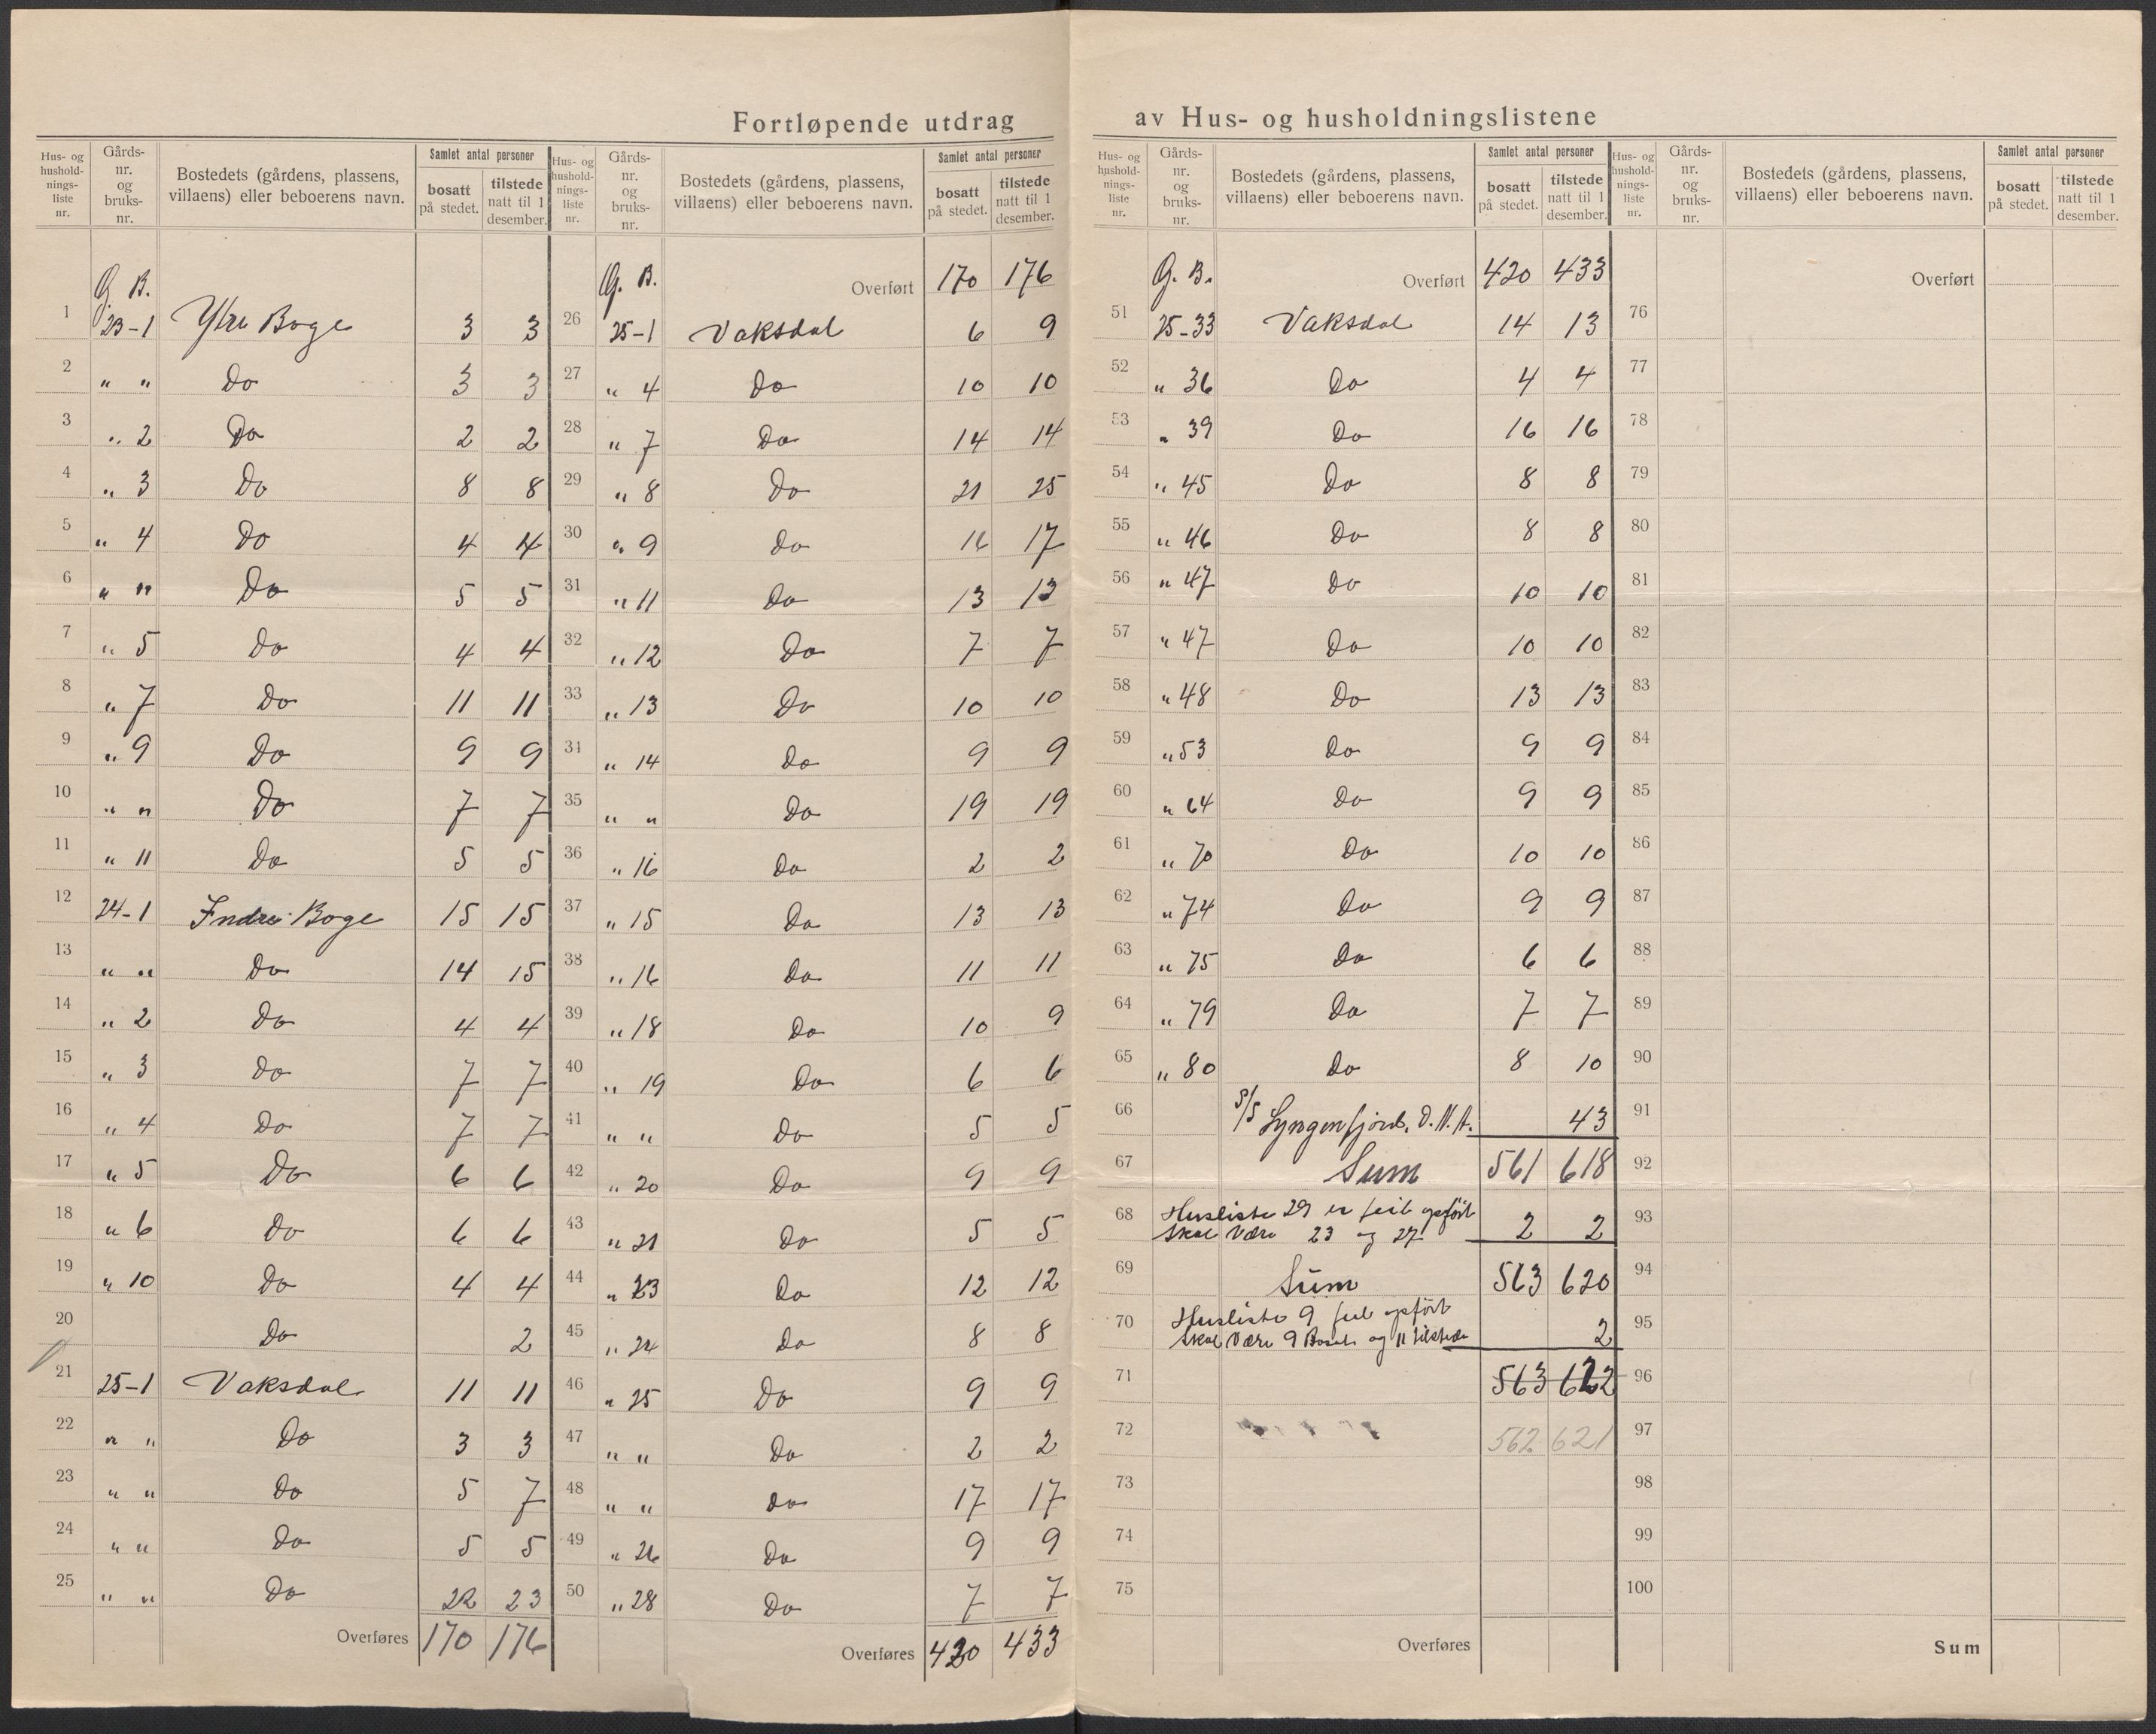 Fortløpende utdrag av Hus- og husholdningslistene
Hus- og husholdnings- liste nr. | Gårds- nr. og bruks- nr. | Bostedets (gårdens, plassens, villaens) eller beboerens navn. | Samlet antal personer | bosatt på stedet. | tilstede natt til 1 desember.
G. B.
1 23-1 Ytre Boge 3 3
2 " " Do 3 3
3 " 2 Do 2 2
4 " 3 Do 8 8
5 " 4 Do 4 4
6 " " Do 5 5
7 " 5 Do 4 4
8 " 7 Do 11 11
9 " 9 Do 9 9
10 " " Do 7 7
11 " 11 Do 5 5
12 24-1 Indre Boge 15 15
13 " " Do 14 15
14 " 2 Do 4 4
15 " 3 Do 7 7
16 " 4 Do 7 7
17 " 5 Do 6 6
18 " 6 Do 6 6
19 " 10 Do 4 4
20 Do 2
21 25-1 Vaksdal 11 11
22 " " Do 3 3
23 " " Do 5 7
24 " " Do 5 5
25 " " Do 22 23
Overføres 170 176
Hus- og husholdnings- liste nr. | Gårds- nr. og bruks- nr. | Bostedets (gårdens, plassens, villaens) eller beboerens navn. | Samlet antal personer | bosatt på stedet. | tilstede natt til 1 desember.
G. B. Overført 170 176
26 25-1 Vaksdal 6 9
27 " 4 Do 10 10
28 " 7 Do 14 14
29 " 8 Do 21 25
30 " 9 Do 16 17
31 " 11 Do 13 13
32 " 12 Do 7 7
33 " 13 Do 10 10
34 " 14 Do 9 9
35 " " Do 19 19
36 " 16 Do 2 2
37 " 15 Do 13 13
38 " 16 Do 11 11
39 " 18 Do 10 9
40 " 19 Do 6 6
41 " " Do 5 5
42 " 20 Do 9 9
43 " 21 Do 5 5
44 " 23 Do 12 12
45 " 24 Do 8 8
46 " 25 Do 9 9
47 " " Do 2 2
48 " " Do 17 17
49 " 26 Do 9 9
50 " 28 Do 7 7
Overføres 420 433
Hus- og husholdnings- liste nr. | Gårds- nr. og bruks- nr. | Bostedets (gårdens, plassens, villaens) eller beboerens navn. | Samlet antal personer | bosatt på stedet. | tilstede natt til 1 desember.
G. B. Overført 420 433
51 25-33 Vaksdal 14 13
52 " 36 Do 4 4
53 " 39 Do 16 16
54 " 45 Do 8 8
55 " 46 Do 8 8
56 " 47 Do 10 10
57 " 47 Do 10 10
58 " 48 Do 13 13
59 " 53 Do 9 9
60 " 64 Do 9 9
61 " 70 Do 10 10
62 " 74 Do 9 9
63 " 75 Do 6 6
64 " 79 Do 7 7
65 " 80 Do 8 10
66 S/S Lyngenfjord. D.N.A. 43
67 Sum 561 618
68 Husliste 29 er feil opført
skal være 23 og 27 2 2
69 Sum 563 620
70 Husliste 9 feil opført
skal være 9 Bosat og 11 tilstede 2
71 563 622
72 562 621
73
74
75
Overføres
Hus- og husholdnings- liste nr. | Gårds- nr. og bruks- nr. | Bostedets (gårdens, plassens, villaens) eller beboerens navn. | Samlet antal personer | bosatt på stedet. | tilstede natt til 1 desember.
Overført
76
77
78
79
80
81
82
83
84
85
86
87
88
89
90
91
92
93
94
95
96
97
98
99
100
Sum